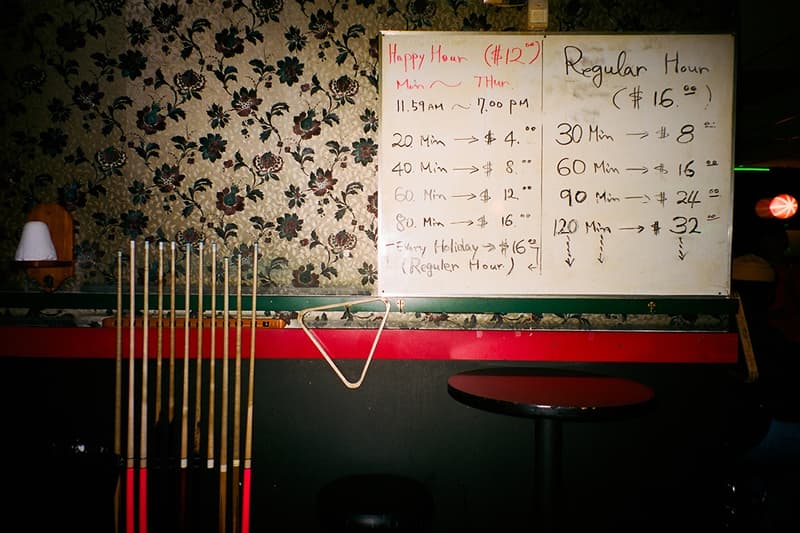 Happy Hour ($12.00)
Mon ~ THur.
11.59 AM ~ 7.00 PM
20 Min → $ 4.00
40 Min → $ 8.00
60 Min → $ 12.00
80 Min → $ 16.00
Every Holiday → $16.00
(Reguler Hour)
Regular Hour
($16.00)
30 Min → $ 8.00
60 Min → $ 16.00
90 Min → $ 24.00
120 Min → $ 32.00